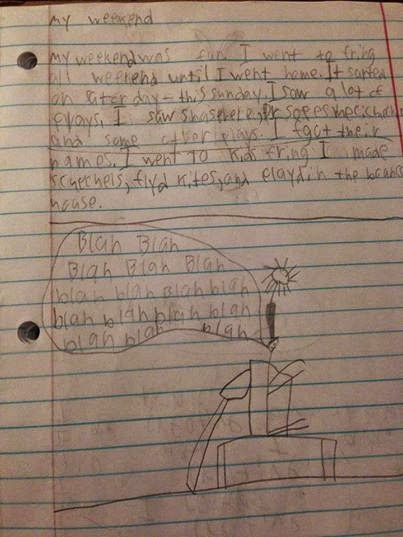 My weekend
My weekend was fun. I went to fring
all weekend until I went home. It sarted
on saterday - this sunday. I saw a lot of
plays. I saw
and some other plays. I fgot their
names. I went to kids fring I made
flyd kites, and playd in the
house.
Blah Blah
Blah Blah Blah
blah blah blah blah
blah blah blah blah
blah blah blah